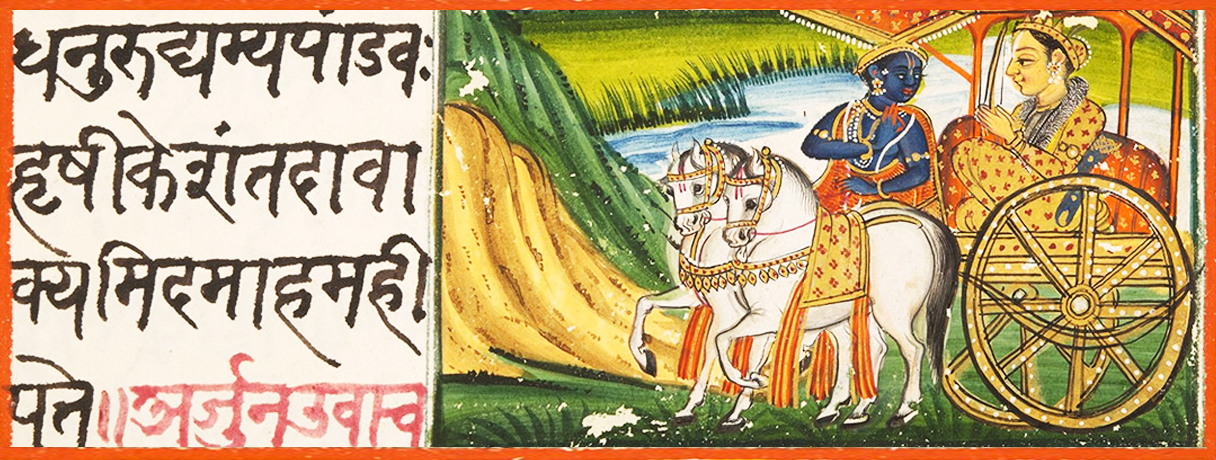 धनुरुद्यम्यपांडवः
हृषीकेशंतदावा
क्यमिदमाहमही
पते॥अर्जुनउवाच